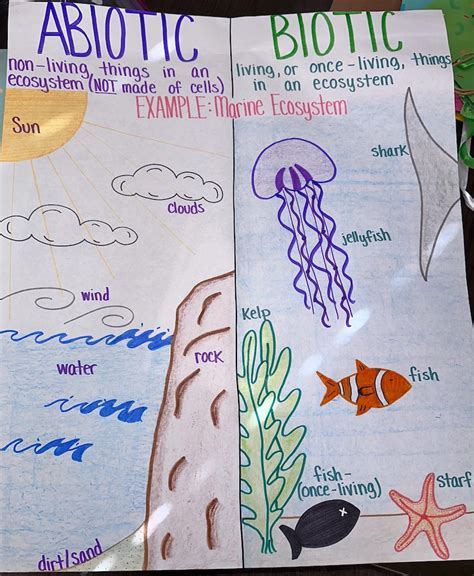 ABIOTIC
non-living things in an
ecosystem (NOT made of cells)
BIOTIC
living, or once-living, things
in an ecosystem
EXAMPLE: Marine Ecosystem
Sun
clouds
wind
water
rock
dirt/sand
shark
jellyfish
Kelp
fish
fish-
(once-living)
starf